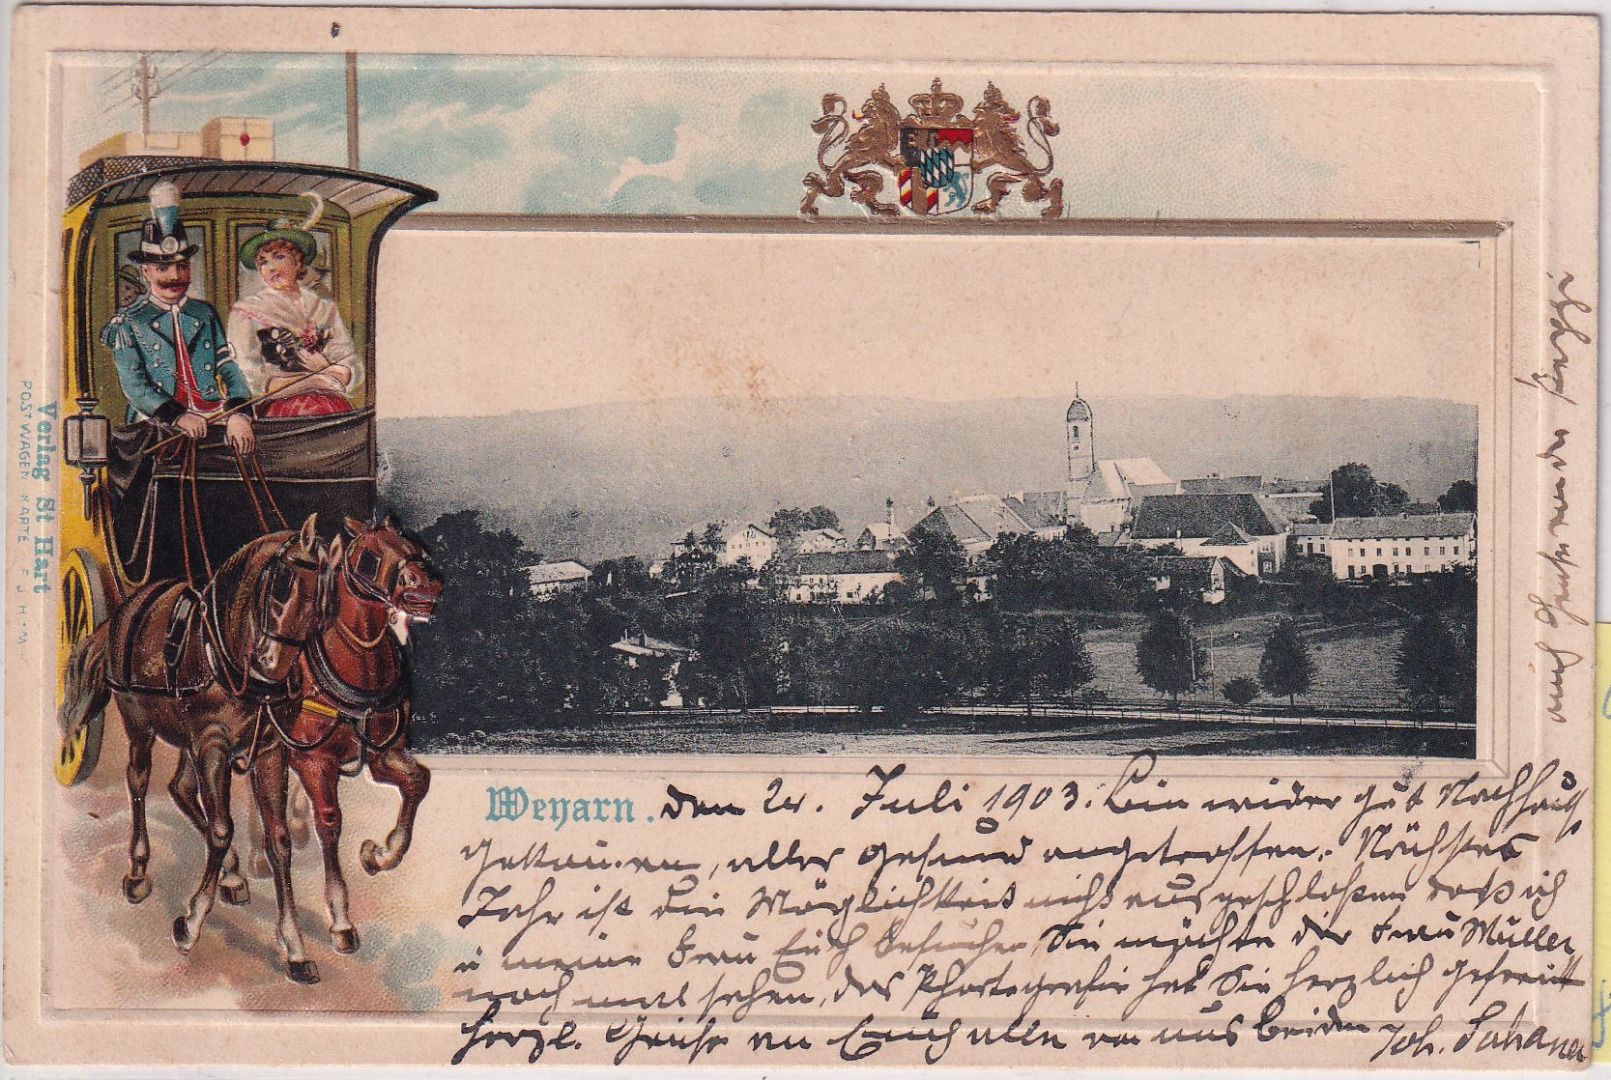 Verlag St Hart
POSTWAGEN KARTE F J H · M
Weyarn. den 24. Juli 1903. Bin wider gut Nachhaus
gekomen, alles gesund angetroffen. Nächstes
Jahr ist die Möglichkeit nicht ausgeschloßen daß ich
u meine Frau Euch besuchen, Sie möchte die Frau Müller
noch mal sehen, das Phortografie hat Sie herzlich gefreut
herzl. Grüße an Euch alle von uns beiden Joh.